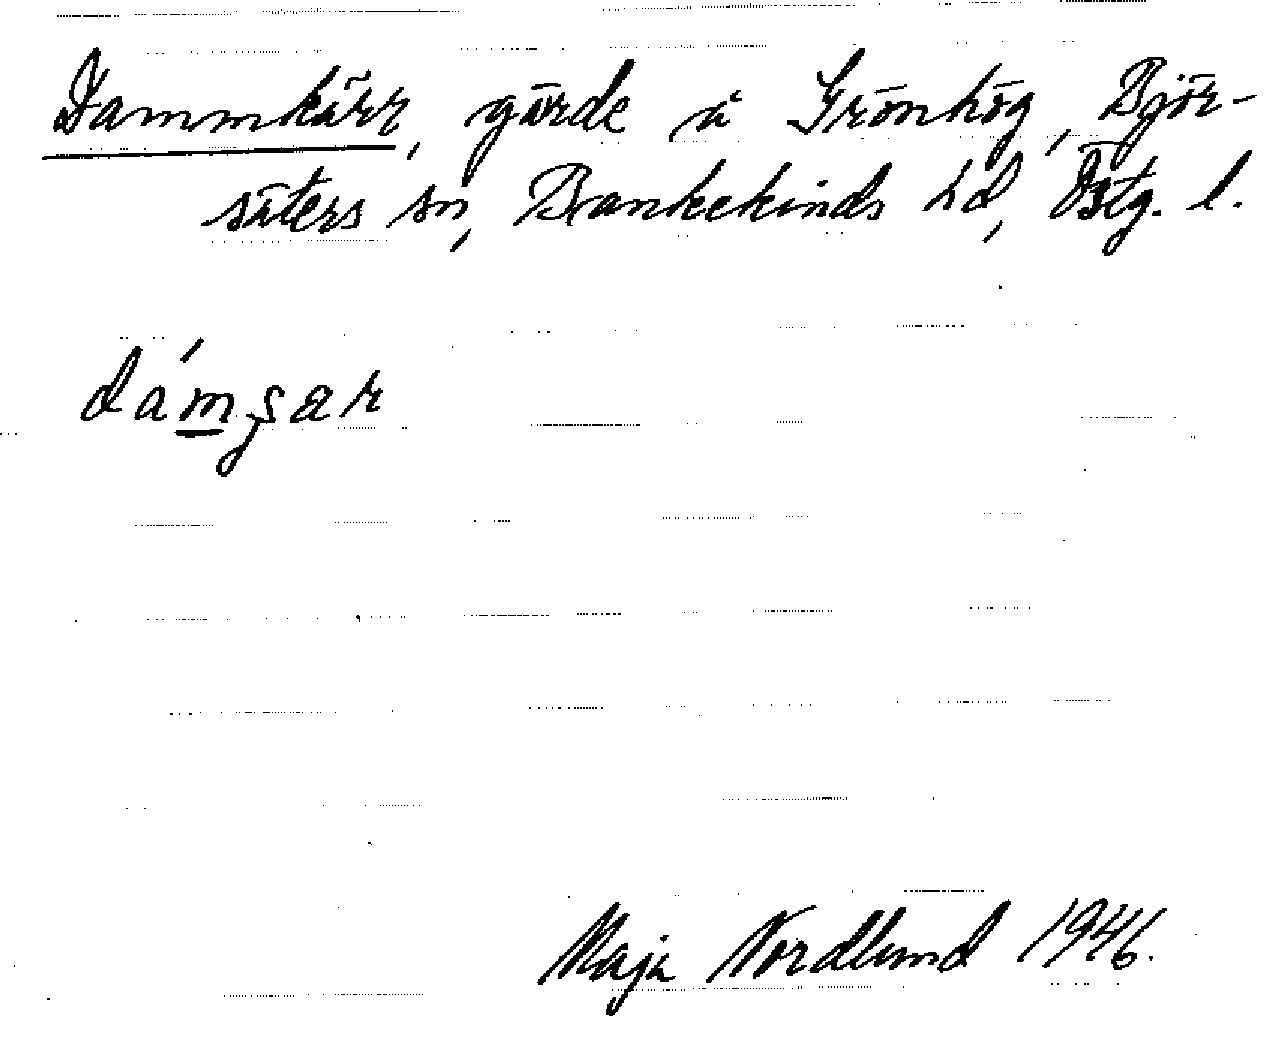 Dammkärr, gärde å Grönhög, Björ-
säters sn, Bankekinds hd, Östg. l.
Maja Nordlund 1946.